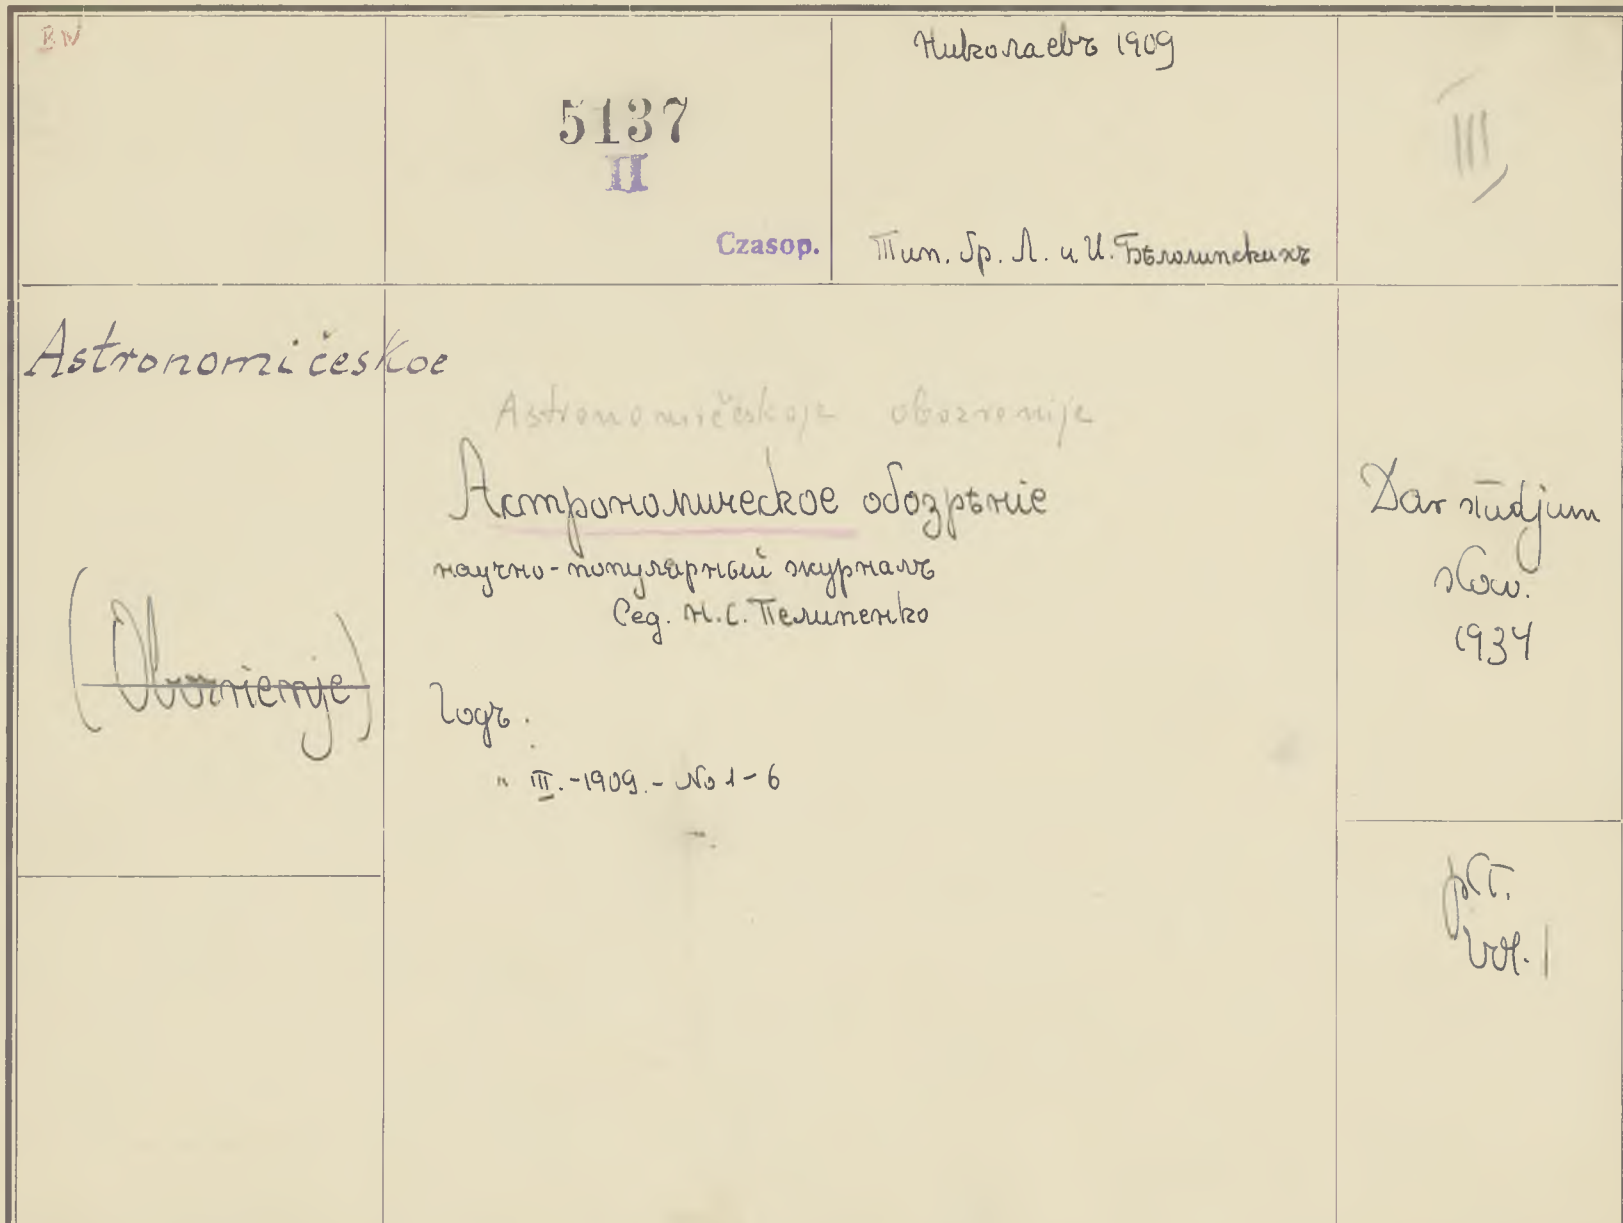 BN
5137
II
Czasop.
Николаевъ 1909
Тип. бр. Л. и И. Бѣлолипскихъ
III
Astronomičeskoe
Astronomičeskoje obozrenije
Астрономическое обозрѣніе
научно-популярный журналъ
Сед. Н.С. Пелипенко
(Obozrienije)
Годъ.
" III. - 1909. - No 1-6
Dar studjum
słow.
1934
vol. 1